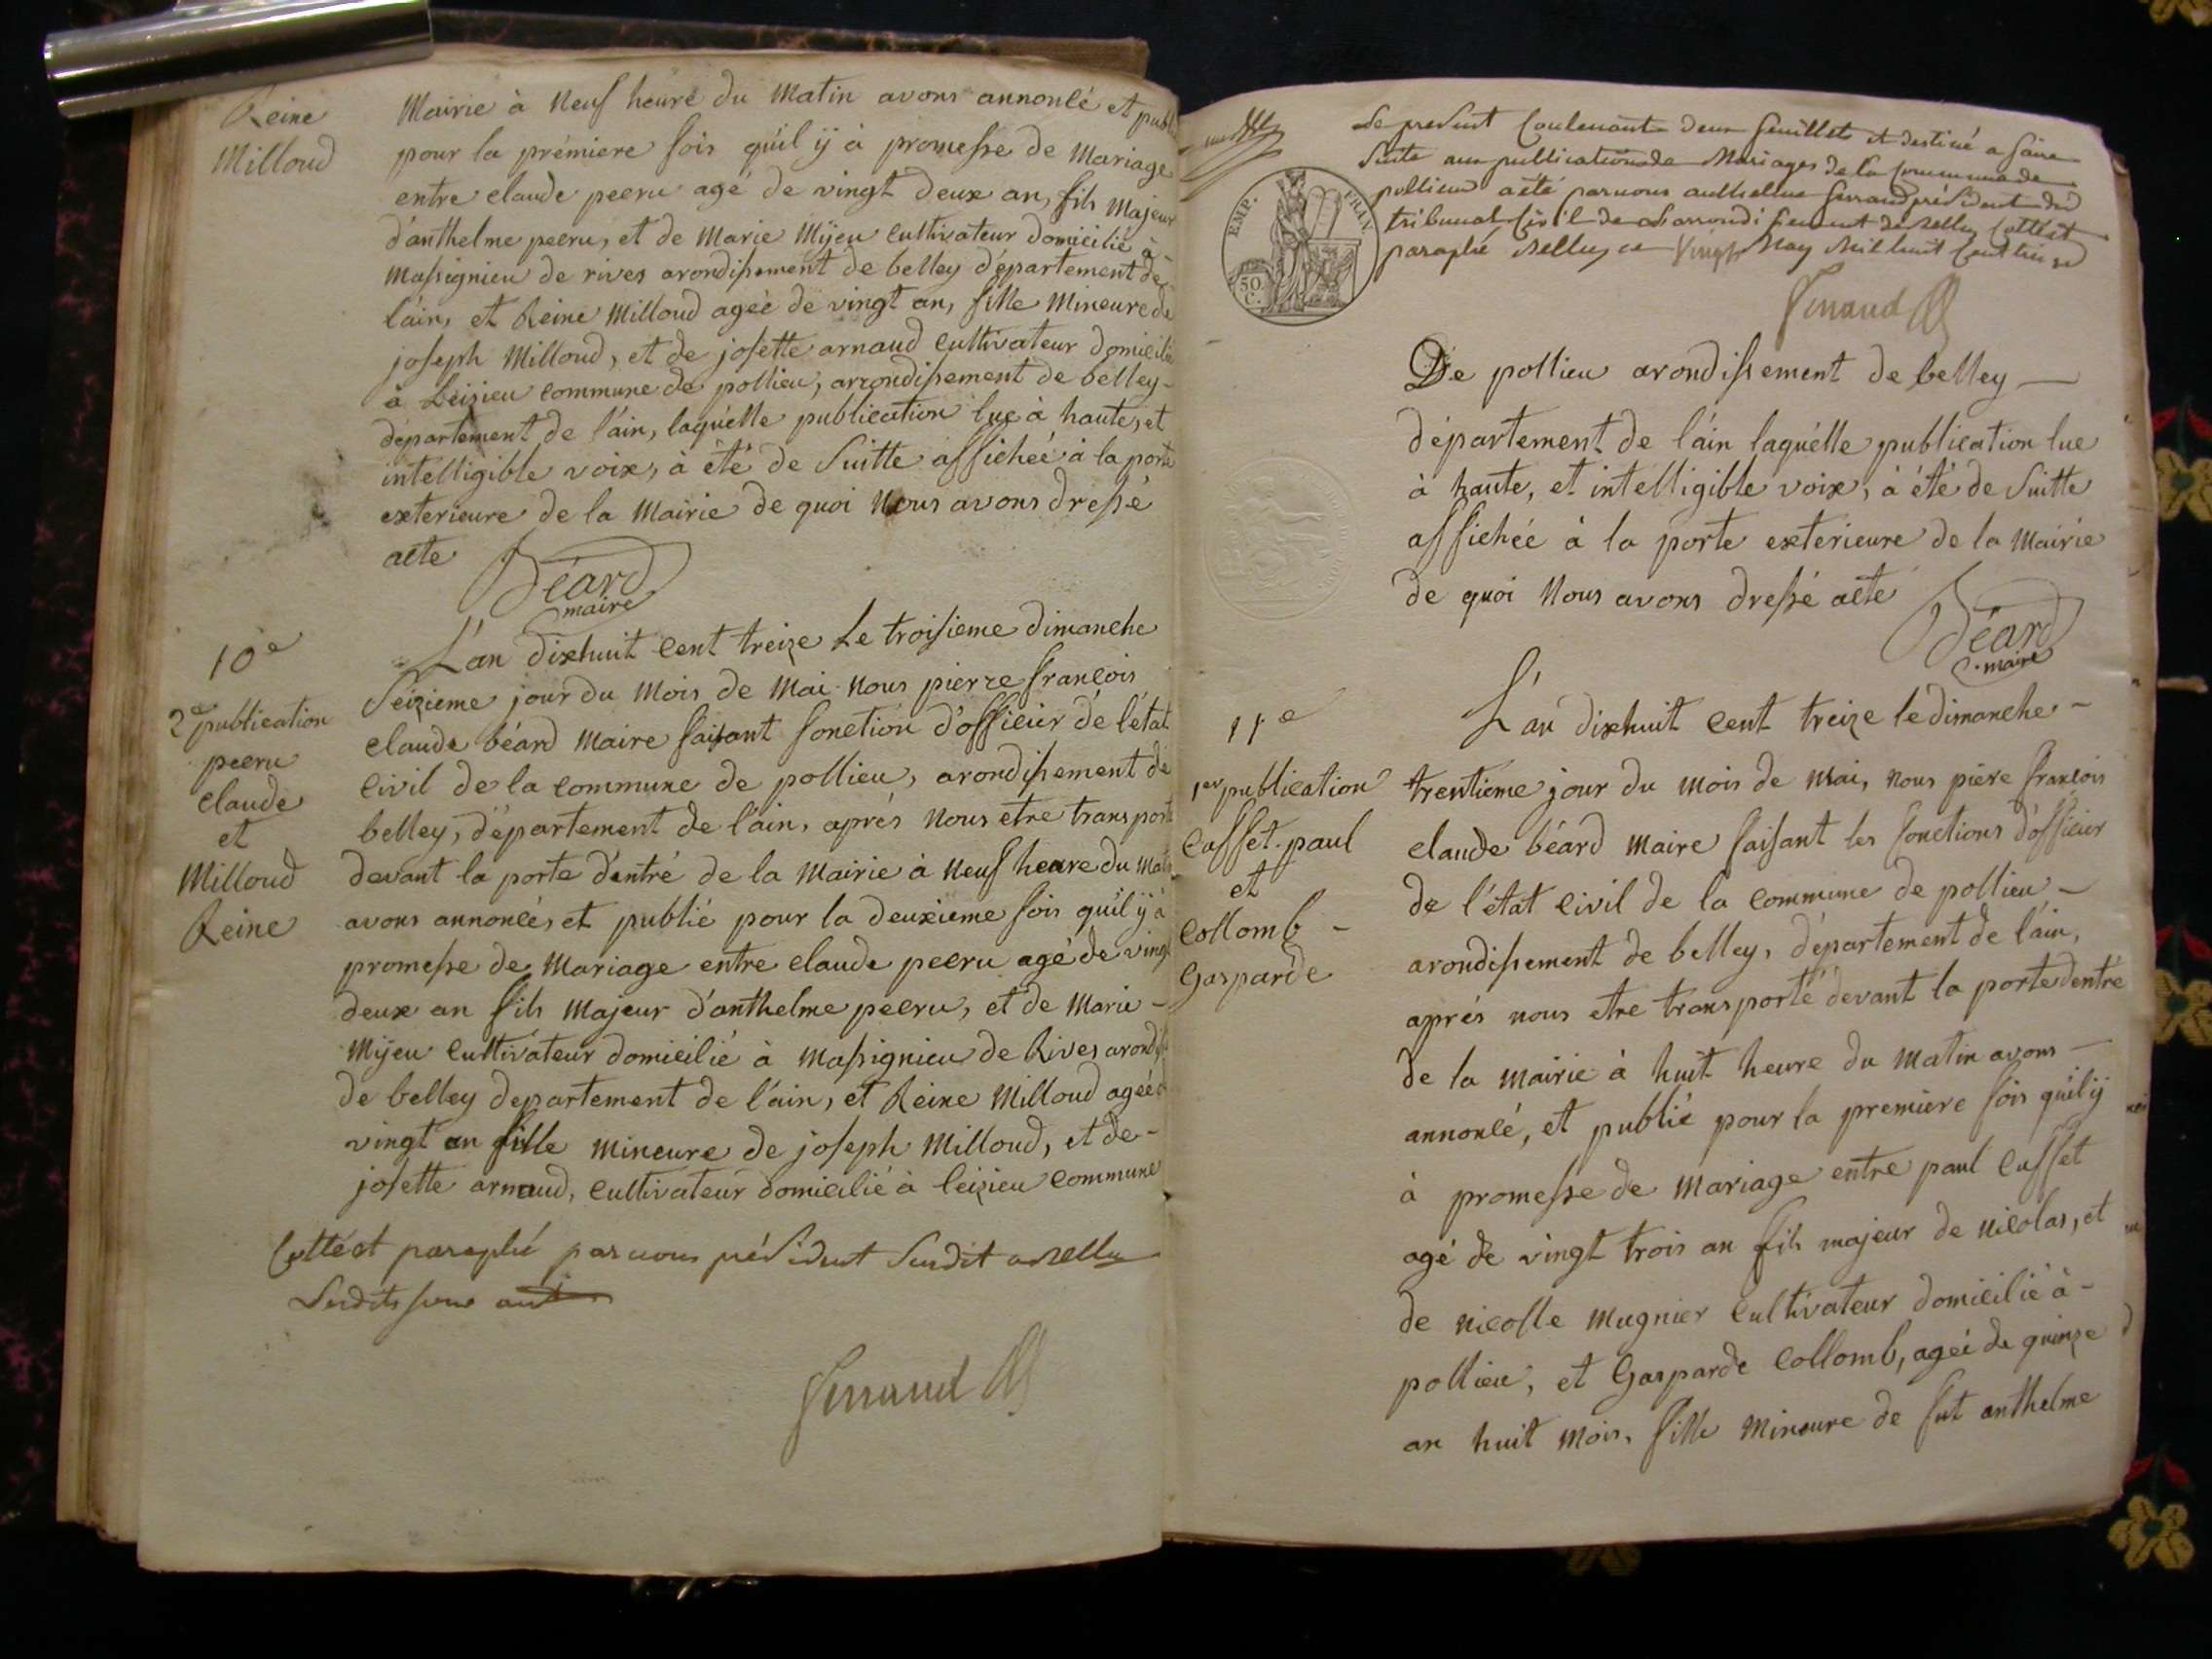 Reine
Milloud
Mairie à neuf heure du matin avons annonlé et publ
pour la prémiere fois quil ÿ à promesse de mariage
entre claude pecru agé de vingt deux an, fils majeur
d'anthelme pecru, et de marie mijeu cultivateur domicilié à
massignieu de rives arondissement de belley département de
láin, et Reine Milloud ageé de vingt an, fille mineure de
joseph Milloud, et de josette arnaud cultivateur domicilié
à Leizieu commune de pollieu, arrondissement de belley-
département de l'áin, laquélle publication lue à haute, et
intelligible voix, à été de suitte affichéé à la porte
exterieure de la mairie de quoi nous avons dressé
acte
Béard
maire
10e
2e publication
pecru
claude
et
Milloud
Reine
L'an dixhuit cent treize Le troisieme dimanche
seizieme jour du mois de mai nous pierre françois
claude béard maire faisant fonction d'officier de létat
civil de la commune de pollieu, arondissement de
belley, département de láin, aprés nous etre transport
devant la porte d'entré de la mairie à neuf heure du mat
avons annonlé, et publié pour la deuxieme fois quil ÿ à
promesse de mariage entre claude pecru agé de vingt
deux an fils majeur d'anthelme pecru, et de marie -
mijeu cultivateur domicilié à massignieu de Rives arondis
de belley departement de láin, et Reine Milloud ageé d
vingt an fille mineure de joseph Milloud, et de-
josette arnaud, cultivateur domicilié à leizieu commune
Cotté et paraphé par nous président susdit a Belley
Ferrand
Le present contenant deux feuillets et destiné a faire
suite aux publications de Mariages de la Commune de
pollieu a été par nous anthelme ferrand président du
tribunal Civil de l'arrondissement de Belley Cotté et
paraphé Belley ce Vingt May Mil huit Cent treize
Ferrand
EMP. FRAN.
50.
C.
De pollieu arondissement de belley —
département de láin laquélle publication lue
à haute, et intelligible voix, à été de suitte
affichée à la porte exterieure de la mairie
de quoi nous avons dressé acte
Béard
maire
11e
1er publication
Cusset paul
et
Collomb -
Gasparde
L'an dixhuit cent treize le dimanche -
trentieme jour du mois de mai, nous piere françois
claude béard maire faisant les fonctions d'officier
de l'état civil de la commune de pollieu -
arondissement de belley, département de láin,
aprés nous etre transporté devant la porte dentré
de la mairie à huit heure du matin avons -
annonlé, et publié pour la premiere fois quil ÿ
à promesse de mariage entre paul Cusset
agé de vingt trois an fils majeur de nicolas, et
de nicolle mugnier cultivateur domicilié à -
pollieu, et Gasparde Collomb, ageé de quinze
an huit mois, fille mineure de fut anthelme